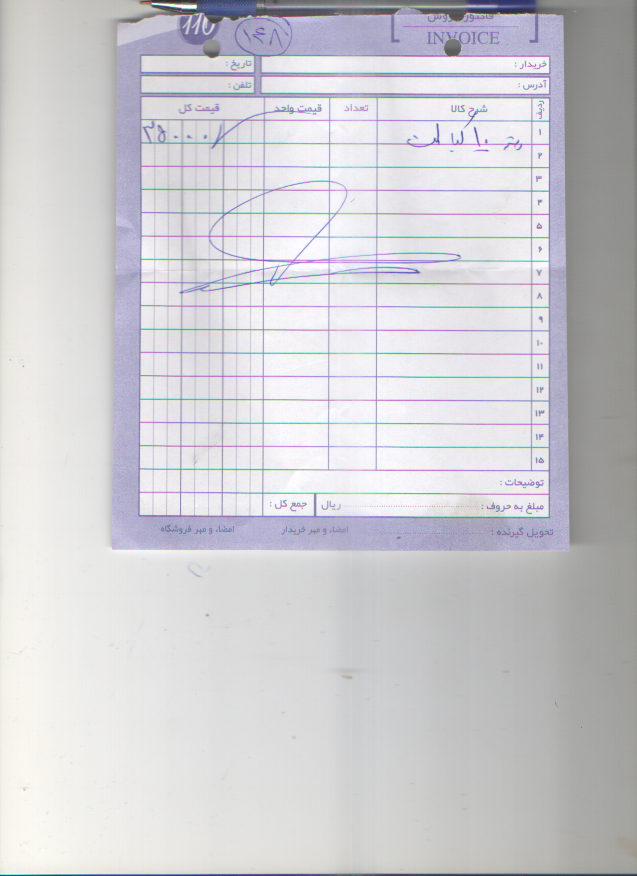 110
۱۴۸
فاکتور فروش
INVOICE
خریدار :
تاریخ :
آدرس :
تلفن :
ردیف شرح کالا تعداد قیمت واحد قیمت کل
۱
۲
۳
۴
۵
۶
۷
۸
۹
۱۰
۱۱
۱۲
۱۳
۱۴
۱۵
توضیحات :
مبلغ به حروف : ریال جمع کل :
تحویل گیرنده : امضاء و مهر خریدار امضاء و مهر فروشگاه